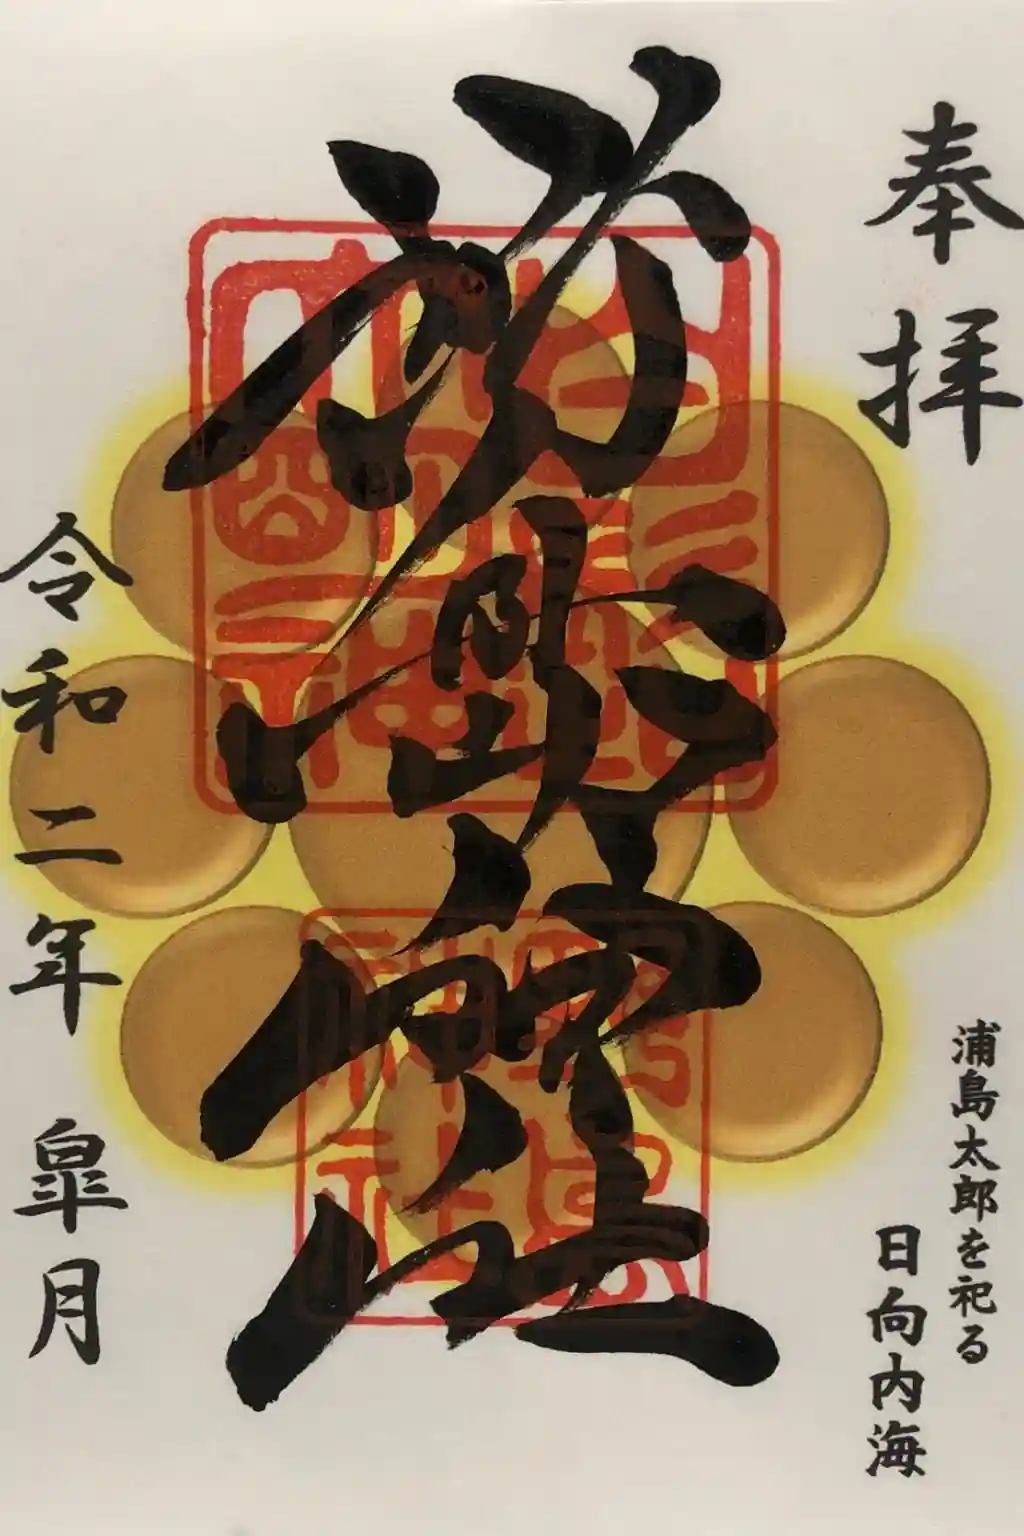 奉拝
浦島太郎を祀る
日向内海
野島神社
令和二年 皐月